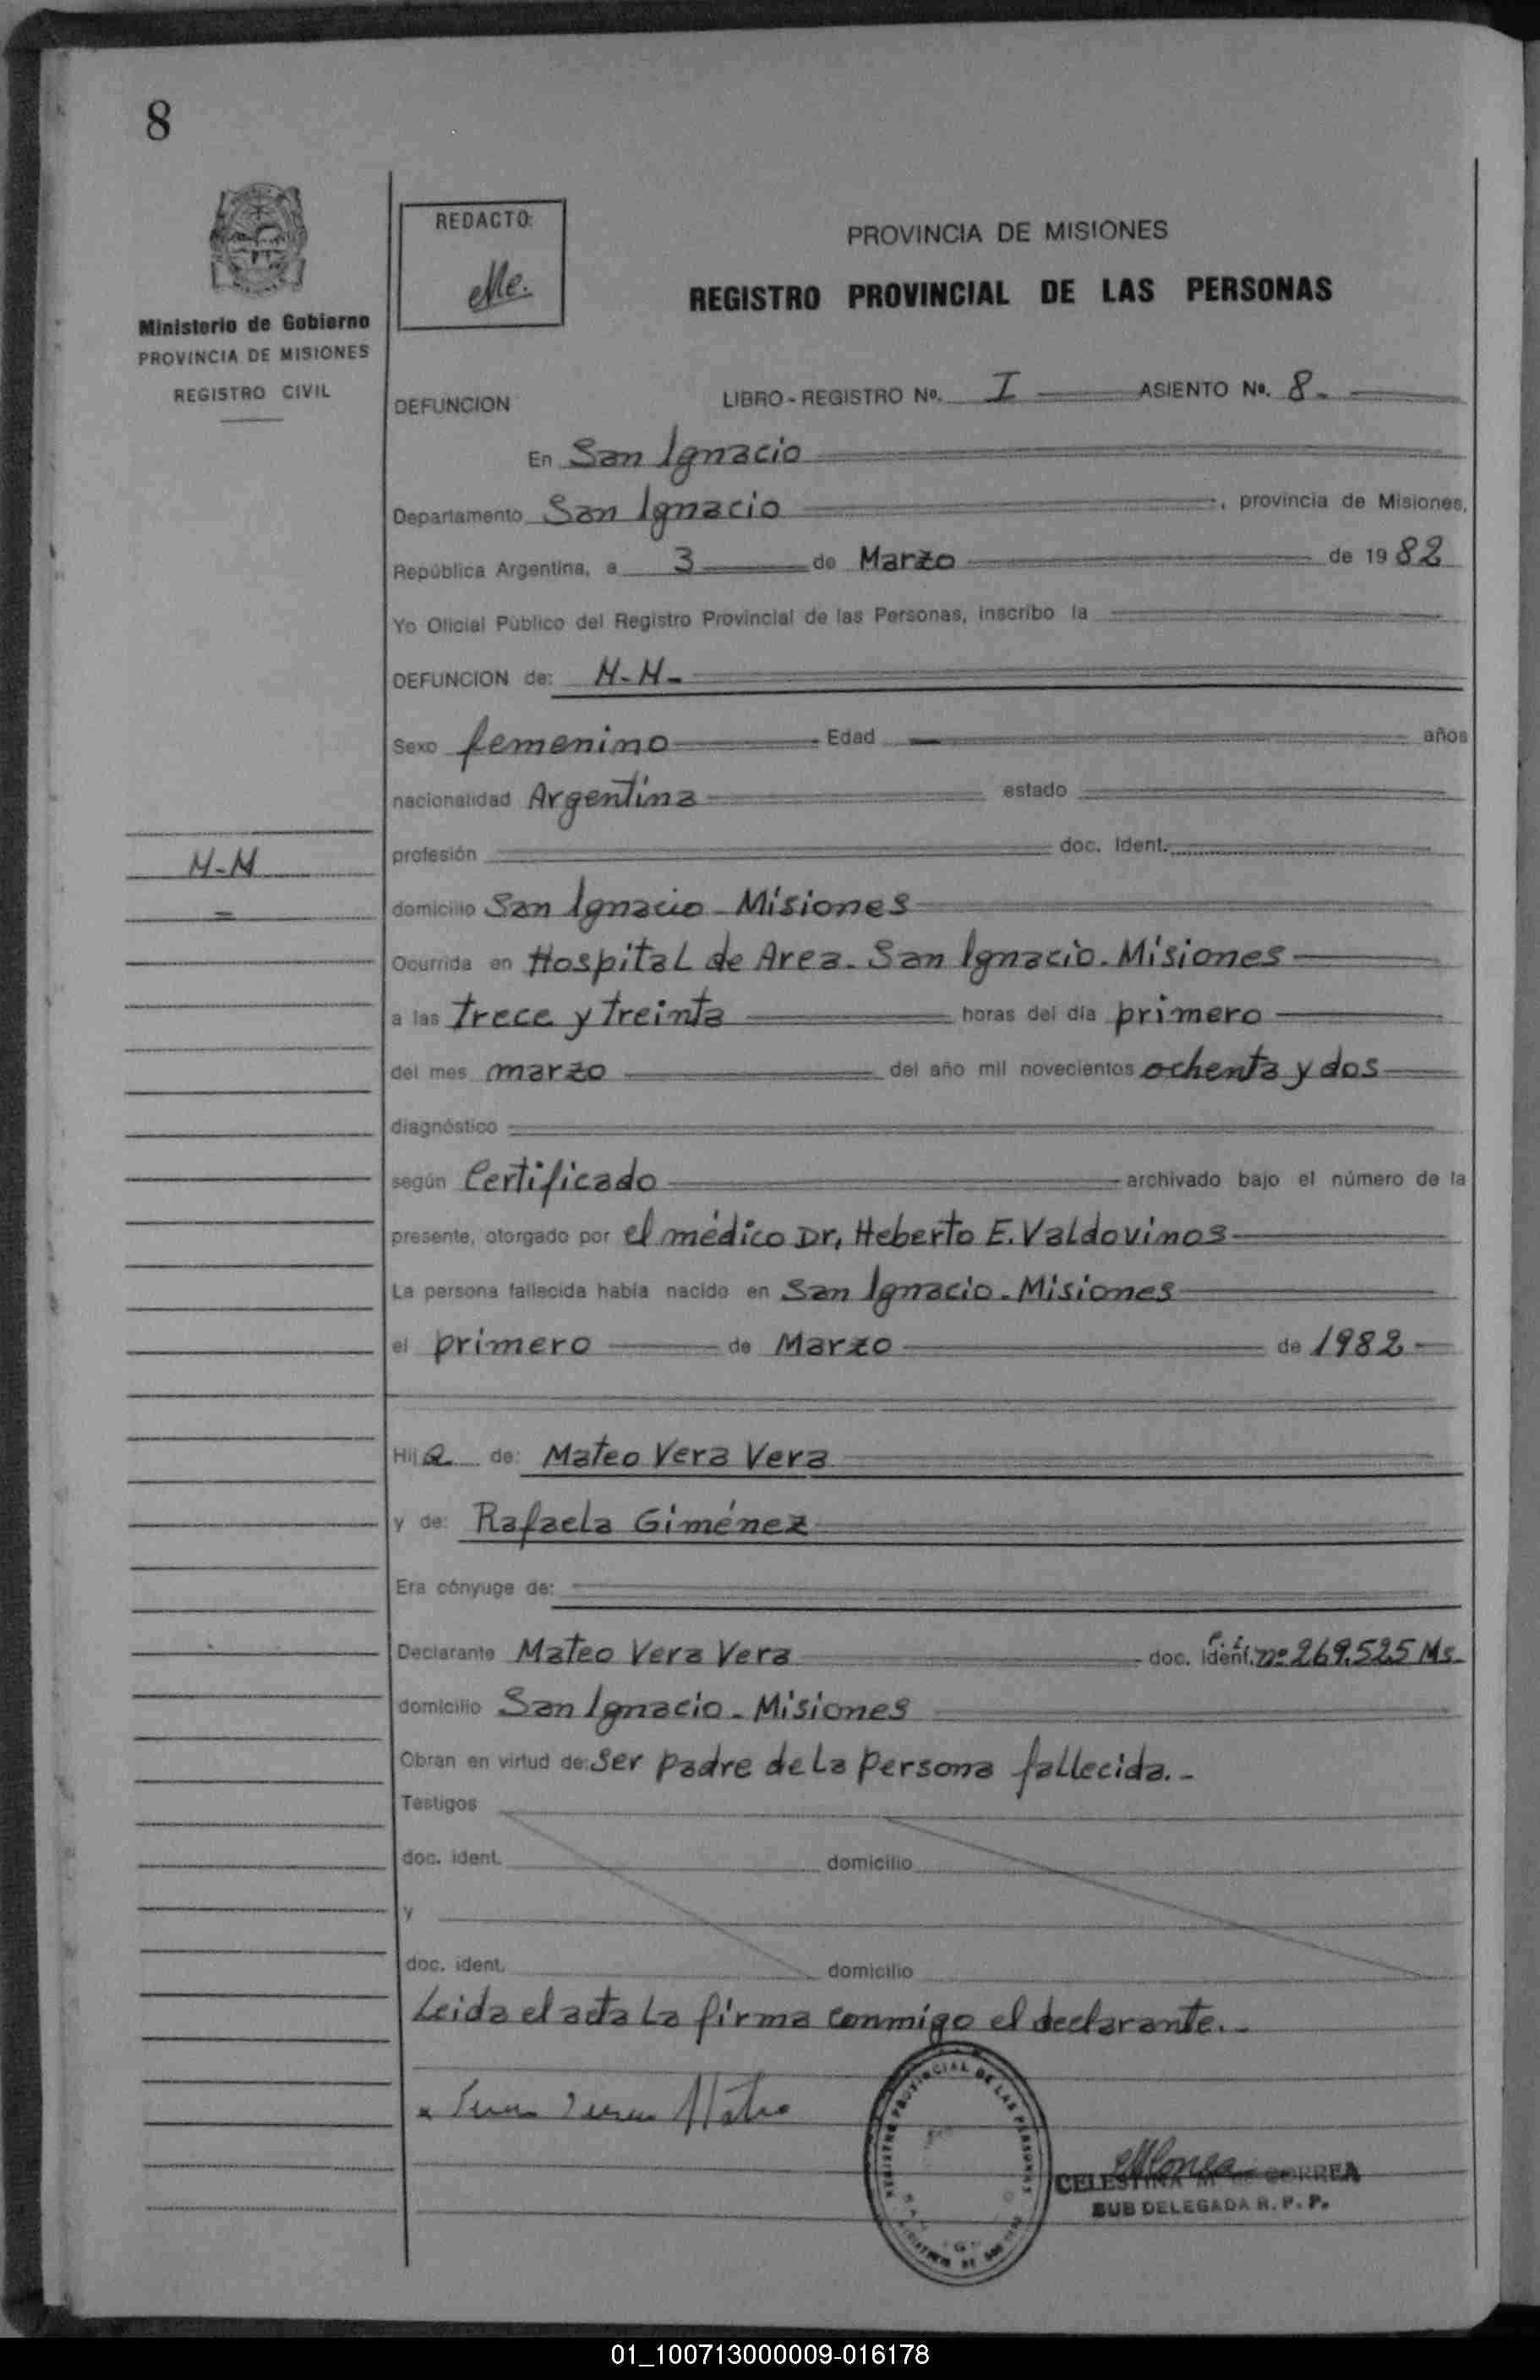 8
REDACTO:
Me.
Ministerio de Gobierno
PROVINCIA DE MISIONES
REGISTRO CIVIL
PROVINCIA DE MISIONES
REGISTRO PROVINCIAL DE LAS PERSONAS
DEFUNCION LIBRO-REGISTRO Nº. I ASIENTO Nº. 8.
En San Ignacio
Departamento San Ignacio, provincia de Misiones,
República Argentina, a 3 de Marzo de 1982
Yo Oficial Público del Registro Provincial de las Personas, inscribo la
DEFUNCION de: N-N-
Sexo femenino Edad años
nacionalidad Argentina estado
N-N
profesión doc. Ident.
domicilio San Ignacio Misiones
Ocurrida en Hospital de Area. San Ignacio. Misiones
a las trece y treinta horas del día primero
del mes marzo del año mil novecientos ochenta y dos
diagnóstico
según Certificado archivado bajo el número de la
presente, otorgado por el médico Dr, Heberto E. Valdovinos
La persona fallecida había nacido en San Ignacio. Misiones
el primero de Marzo de 1982
Hija de: Mateo Vera Vera
y de: Rafaela Giménez
Era cónyuge de:
Declarante Mateo Vera Vera doc. Ident. nº 269.525 Ms.
domicilio San Ignacio. Misiones
Obran en virtud de: Ser padre de la persona fallecida.-
Testigos
doc. ident. domicilio
y
doc. ident. domicilio
Leida el acta la firma conmigo el declarante.-
x Vera Vera Mateo
REGISTRO PROVINCIAL DE LAS PERSONAS
CELESTINA M. de CORREA
SUB DELEGADA R. P. P.
01_100713000009-016178